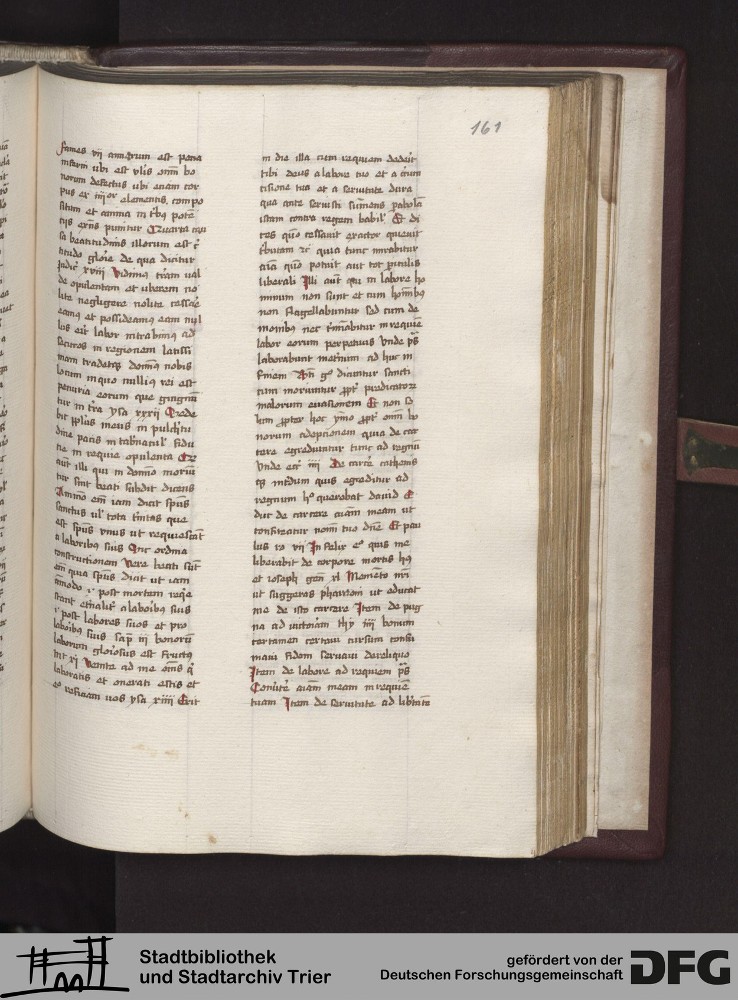 161
fames vij annorum est pena
inferni ubi est vlis omnium bo
norum defectus ubi etiam cor
pus ex iiijor elementis compo
situm et anima in tribus poten
tijs eius punitur Quarta cau
sa beatitudinis illorum est
titudo glorie de qua dicitur
Judic xviij Vidimus terram ual
de opulentam et uberem no
lite negligere nolite cessare
eamus et possideamus eam nul
lus erit labor intrabimus ad
securos in regionem latissi
mam tradetque dominus nobis
locum in quo nullius rei est
penuria eorum que gingnun
tur in terra ysa xxxij Sede
bit populus meus in pulchritu
dine pacis in tabernaculis fidu
cie in requie opulenta
autem illi qui in domino moriun
tur sint beati subdit dicens
Ammodo enim iam dicit spiritus
sanctus uel tota trinitas que
est spiritus vnus ut requiescant
a laboribus suis
constructionem Vere beati sunt
enim quia spiritus dicit ut iam
ammodo i post mortem requie
scant eternaliter a laboribus suis
i post labores suos et pro
laboribus suis sap iij bonorum
laborum gloriosus est fructus
mt xi Venite ad me omnes qui
laboratis et onerati estis et
ego reficiam uos ysa xiiij Erit
in die illa cum requiem dederit
tibi deus a labore tuo et a concus
sione tua et a seruitute dura
qua ante seruisti sumens parabolam
istam contra regem babil Et di
ces quomodo cessauit exactor quieuit
tributum etc quia tunc mirabitur
anima quomodo potuit aut tot periculis
liberari Illi autem qui in labore ho
minum non sunt et cum hominibus
non flagellabuntur sed cum de
monibus nec terminabitur in requiem
labor eorum perpetuus Vnde ps
laborabunt in eternum ad huc in
finem
cum moriuntur propter predicatorum
malorum euasionem Et non so
lum propter hoc ymo propter omnium bo
norum adeptionem quia de car
cere egrediuntur tunc ad regnum
Vnde ecc iiij De carcere cathenis
que interdum quis egreditur ad
regnum hoc querebat dauid
duc de carcere animam meam ut
confiteatur nomini tuo domine Et pau
lus ro vij Infelix ego quis me
liberabit de corpore mortis huius
et ioseph gen xl Memento mei
ut suggeras pharaoni ut educat
me de isto carcere Item de pug
na ad uictoriam thy iiij bonum
certamen certaui cursum consu
maui fidem seruaui de reliquo
Item de labore ad requiem ps
Conuertere anima mea in requiem
tuam Item de seruitute ad libertatem
Stadtbibliothek
und Stadtarchiv Trier
gefördert von der
Deutschen Forschungsgemeinschaft
DFG